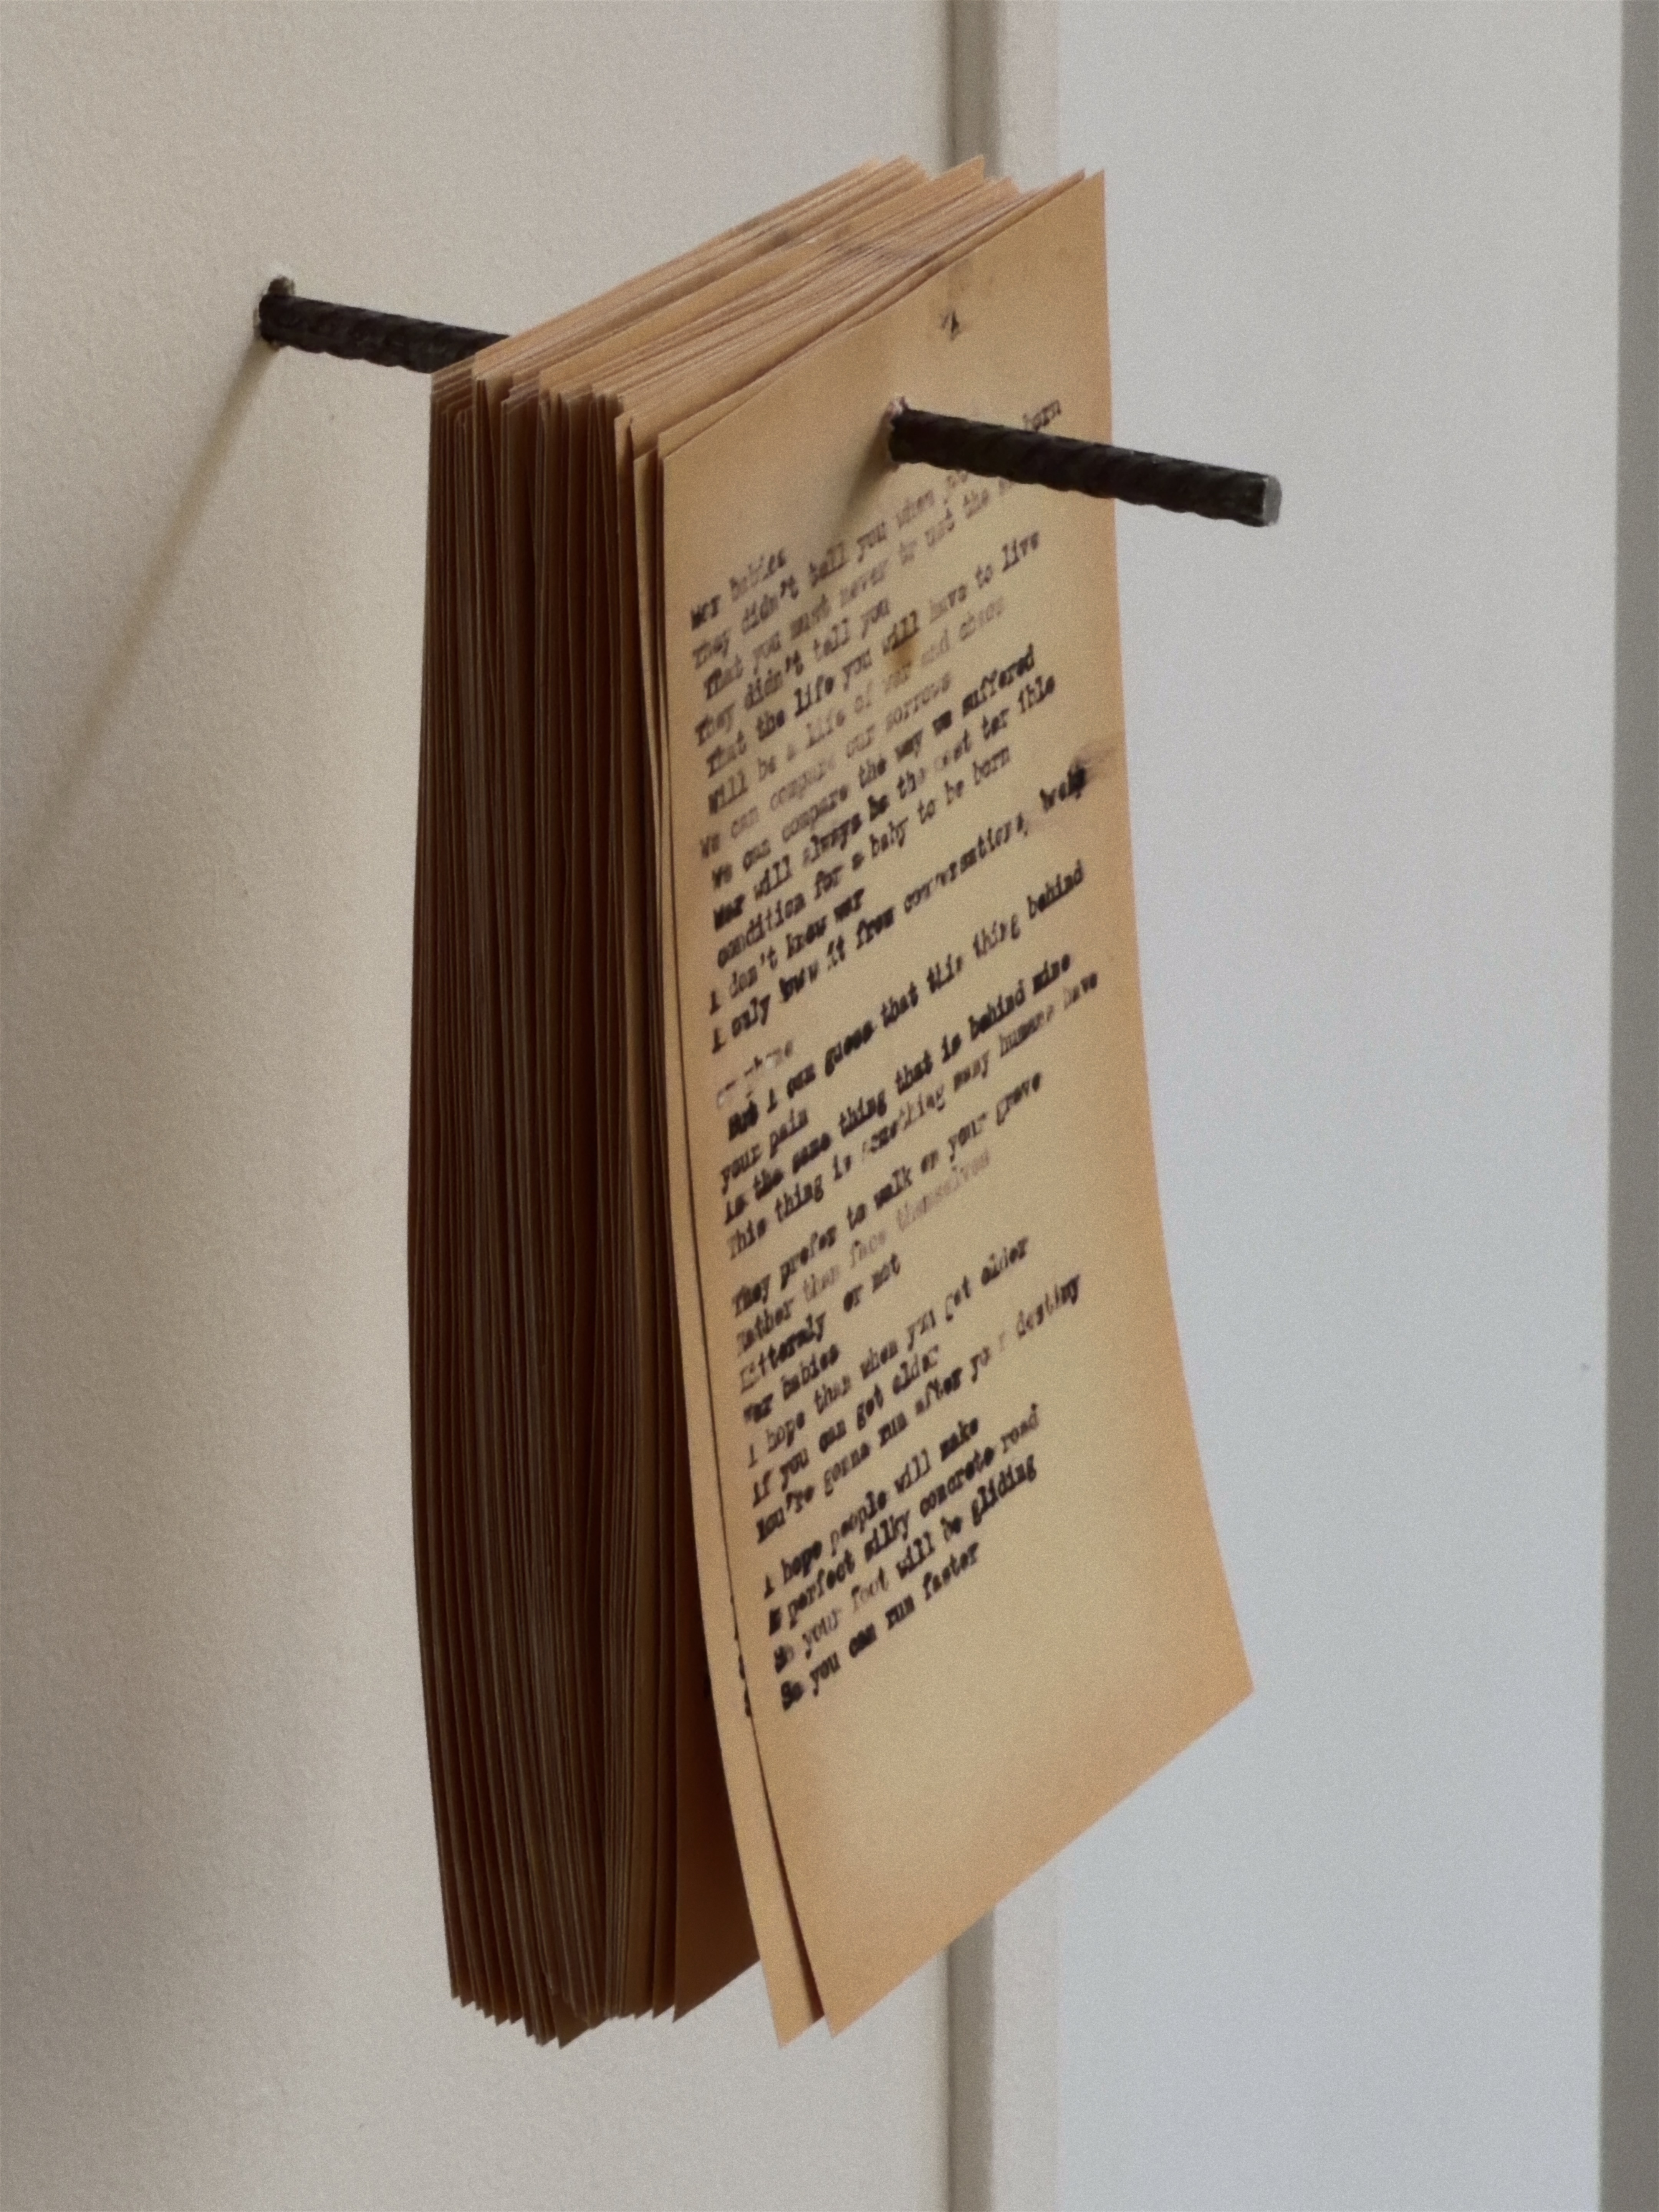 War babies
They didn't tell you when you born
That you must never trust the
They didn't tell you
That the life you will have to live
Will be a life of war and chaos
We can compare our sorrows
We can compare the way we suffered
War will always be the most ter ible
condition for a baby to be born
I don't know war
I only know it from conversations,
But I can guess that this thing behind
your pain
is the same thing that is behind mine
This thing is something many humans have
They prefer to walk on your grave
Rather than face themselves
Litteraly or not
War babies
I hope than when you get older
if you can get older
You're gonna run after your destiny
I hope people will make
A perfect silky concrete road
So your foot will be gliding
So you can run faster